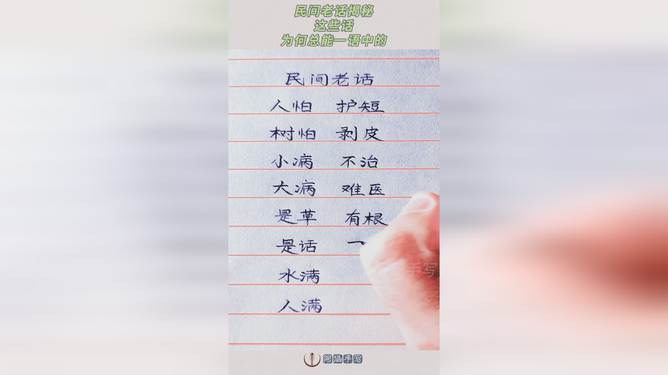 民间老话揭秘
这些话
为何总能一语中的
民间老话
人怕 护短
树怕 剥皮
小病 不治
大病 难医
是草 有根
是话 一
水满
人满
手写